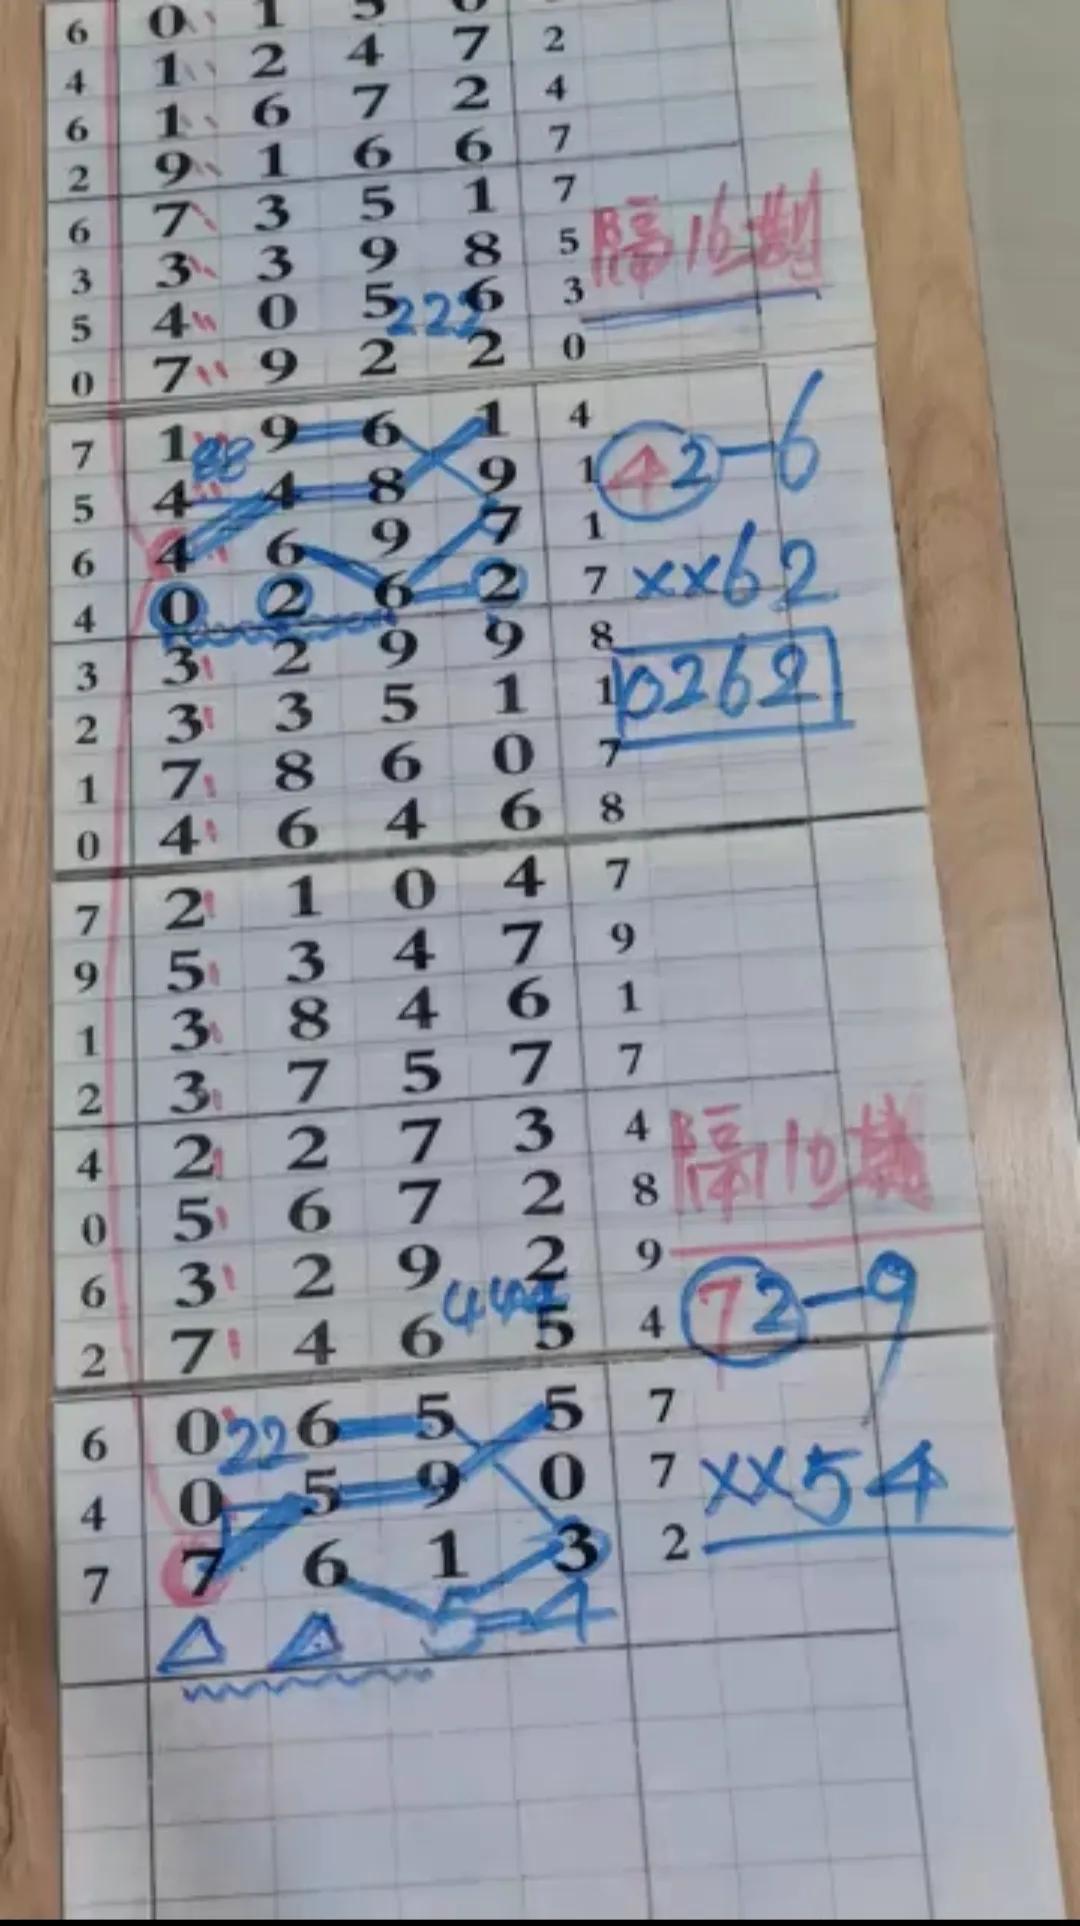 6 0 1 5 6
4 1 2 4 7 2
6 1 6 7 2 4
2 9 1 6 6 7
6 7 3 5 1 7
3 3 3 9 8 5
隔16期
5 4 0 5 6 3
222
0 7 9 2 2 0
7 1 9 6 1 4
88
5 4 4 8 9 1
42-6
6 4 6 9 7 1
4 0 2 6 2 7
xx62
3 3 2 9 9 8
2 3 3 5 1 1
0262
1 7 8 6 0 7
0 4 6 4 6 8
7 2 1 0 4 7
9 5 3 4 7 9
1 3 8 4 6 1
2 3 7 5 7 7
4 2 2 7 3 4
隔10期
0 5 6 7 2 8
6 3 2 9 2 9
444
72-9
2 7 4 6 5 4
6 0 6 5 5 7
22
4 0 5 9 0 7
xx54
7 7 6 1 3 2
△ △ 5=4